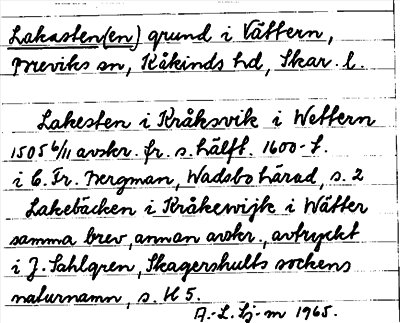 Lakasten(en) grund i Vättern,
Breviks sn, Kåkinds hd, Skar. l.
Lakesten i Kråksvik i Wettern
1505 6/11 avskr. fr. s. hälft. 1600-t.
i C. Fr. Bergman, Wadsbo härad, s. 2
Lakebäcken i Kråkewijk i Wätter
samma brev, annan avskr., avtryckt
i J. Sahlgren, Skagershults sockens
naturnamn, s. 45.
A.-L. Lj-m 1965.